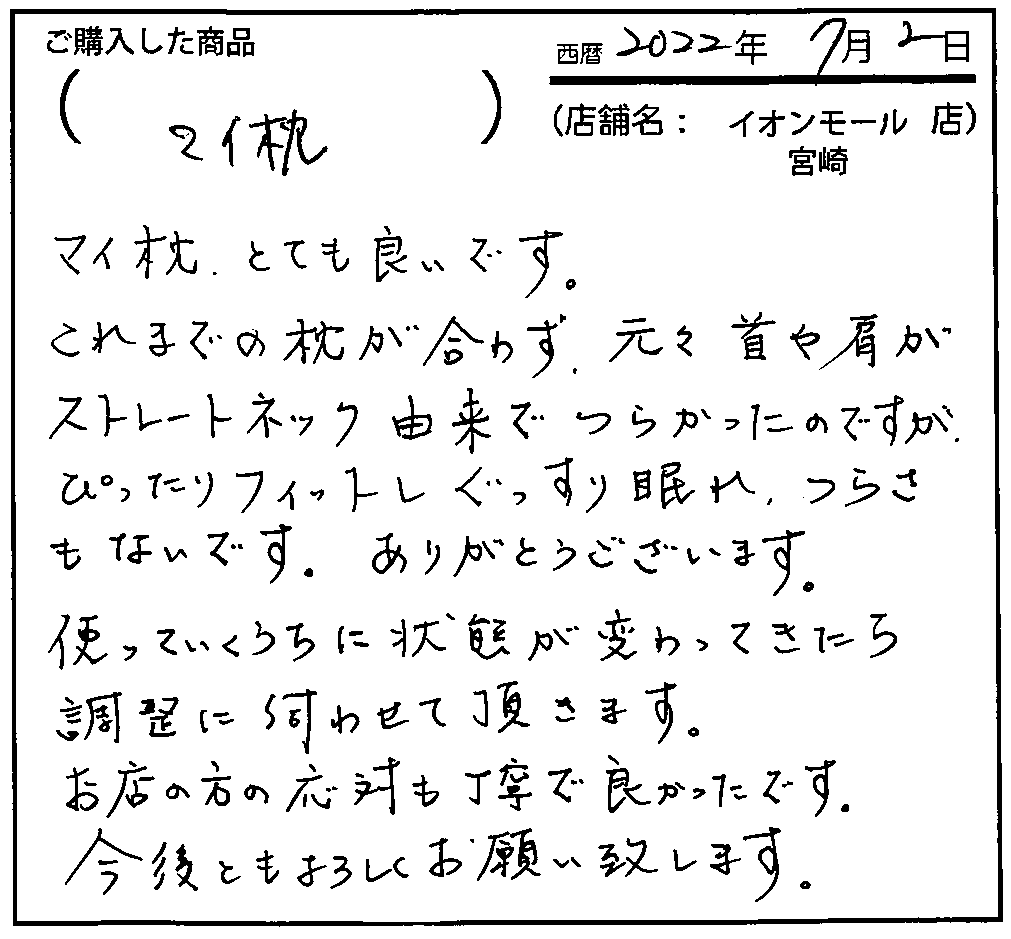 ご購入した商品
西暦 2022年 7月 2日
( マイ枕 )
(店舗名: イオンモール 店)
宮崎
マイ枕、とても良いです。
これまでの枕が合わず、元々首や肩が
ストレートネック由来でつらかったのですが、
ぴったりフィットしぐっすり眠れ、つらさ
もないです。ありがとうございます。
使っていくうちに状態が変わってきたら
調整に伺わせて頂きます。
お店の方の応対も丁寧で良かったです。
今後ともよろしくお願い致します。